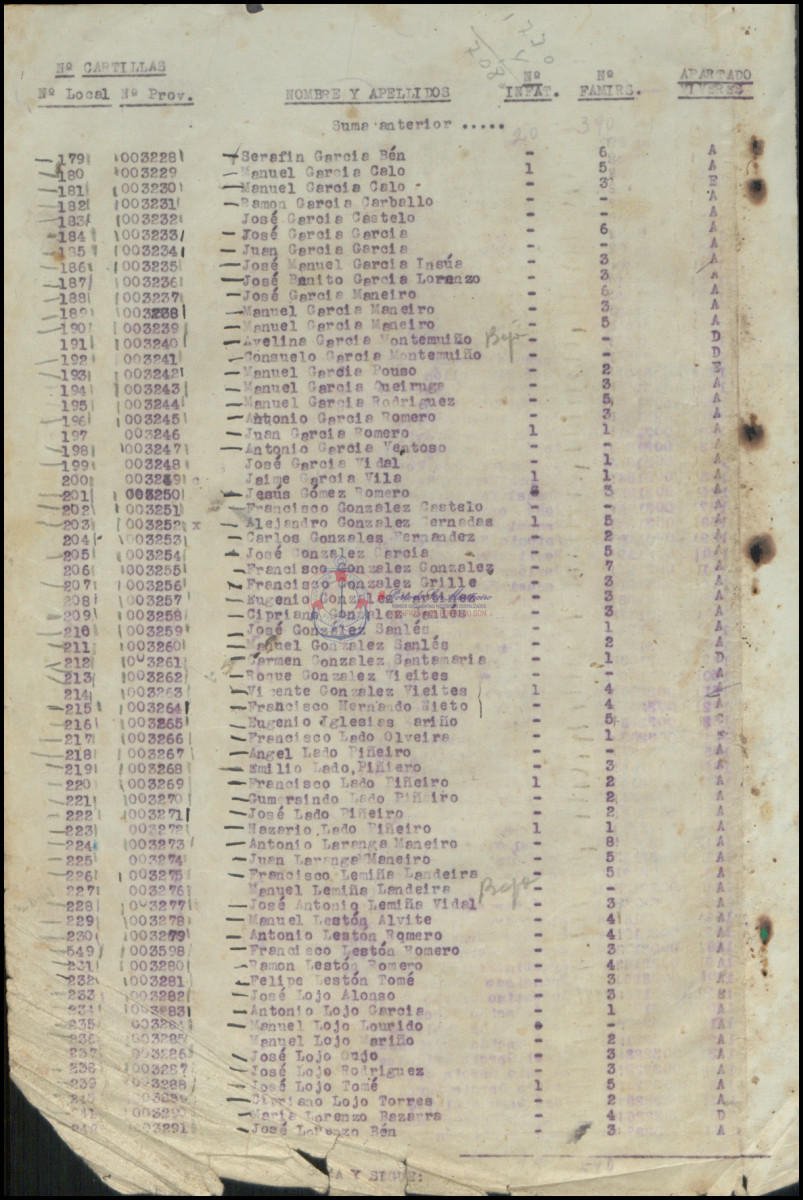 Nº CARTILLAS
Nº Local Nº Prov. NOMBRE Y APELLIDOS Nº INFAT. Nº FAMIRS. APARTADO VIVERES
Suma anterior ..... 20 390
179 003228 Serafin Garcia Bén - 6 A
180 003229 Manuel Garcia Calo 1 5 A
181 003230 Manuel Garcia Calo - 3 E
182 003231 Ramon Garcia Carballo - - A
183 003232 José Garcia Castelo - - A
184 003233 José Garcia Garcia - 6 A
185 003234 Juan Garcia Garcia - - A
186 003235 José Manuel Garcia Insúa - 3 A
187 003236 José Benito Garcia Lorenzo - 3 A
188 003237 José Garcia Maneiro - 6 A
189 003238 Manuel Garcia Maneiro - 3 A
190 003239 Manuel Garcia Maneiro - 5 A
191 003240 Avelina Garcia Montemuiño Baja - - D
192 003241 Consuelo Garcia Montemuiño - - D
193 003242 Manuel Garcia Pouso - 2 E
194 003243 Manuel Garcia Queiruga - 3 A
195 003244 Manuel Garcia Rodriguez - 5 A
196 003245 Antonio Garcia Romero - 3 A
197 003246 Juan Garcia Romero 1 1 A
198 003247 Antonio Garcia Ventoso - - A
199 003248 José Garcia Vidal - 1 A
200 003249 Jaime Garcia Vila 1 1 A
201 003250 Jesús Gómez Romero - 3 A
202 003251 Francisco Gonzalez Castelo - - A
203 003252 x Alejandro Gonzalez Bernadas 1 5 A
204 003253 Carlos Gonzalez Fernandez - 2 A
205 003254 José Gonzalez Garcia - 5 A
206 003255 Francisco Gonzalez Gonzalez - 7 A
207 003256 Francisco Gonzalez Grille - 3 A
208 003257 Eugenio Gonzalez Martinez - 3 A
209 003258 Cipriano Gonzalez Sanlés - 3 A
210 003259 José Gonzalez Sanlés - 1 A
211 003260 Manuel Gonzalez Sanlés - 2 A
212 003261 Carmen Gonzalez Santamaria - 1 D
213 003262 Roque Gonzalez Vieites - - A
214 003263 Vicente Gonzalez Vieites 1 4 A
215 003264 Francisco Hernando Nieto - 4 A
216 003265 Eugenio Iglesias Mariño - 5 C
217 003266 Francisco Lado Olveira - 1
218 003267 Angel Lado Piñeiro - - A
219 003268 Emilio Lado Piñiero - 3 A
220 003269 Francisco Lado Piñeiro 1 2 A
221 003270 Gumersindo Lado Piñeiro - 2 A
222 003271 José Lado Piñeiro - 2 A
223 003272 Nazario Lado Piñeiro 1 1 A
224 003273 Antonio Laranga Maneiro - 8 A
225 003274 Juan Laranga Maneiro - 5 A
226 003275 Francisco Lemiña Landeira - 5 A
227 003276 Manuel Lemiña Landeira Baja - - A
228 003277 José Antonio Lemiña Vidal - 3 A
229 003278 Manuel Lestón Alvite - 4 A
230 003279 Antonio Lestón Romero - 4 A
549 003598 Francisco Lestón Romero - 3 A
231 003280 Ramon Lestón Romero - 4 A
232 003281 Felipe Lestón Tomé - 3 A
233 003282 José Lojo Alonso - 3
234 003283 Antonio Lojo Garcia - 1 A
235 003284 Manuel Lojo Lourido - - A
236 003285 Manuel Lojo Mariño - 2 A
237 003286 José Lojo Oujo - 3 A
238 003287 José Lojo Rodriguez - 3 A
239 003288 José Lojo Tomé 1 5 A
240 003289 Cipriano Lojo Torres - 2 A
241 003290 Maria Lorenzo Bazarra - 4 D
242 003291 José Lorenzo Bén - 3 A
A Y SIGUE: